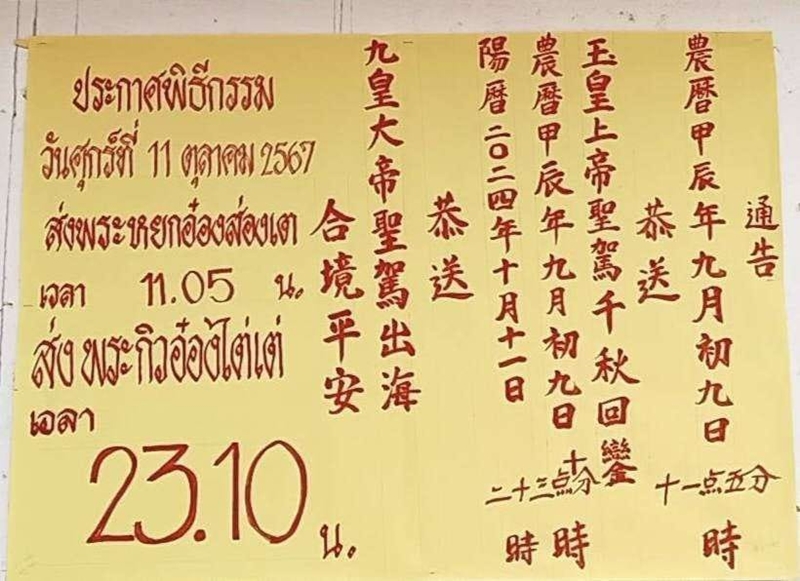 ประกาศพิธีกรรม
วันศุกร์ที่ 11 ตุลาคม 2567
ส่งพระหยกอ๋องส่องเต
เวลา 11.05 น.
ส่งพระกิวอ๋องไต่เต่
เวลา
23.10 น.
通告
農曆甲辰年九月初九日 十一点五分 時
恭送
玉皇上帝聖駕千秋回鑾
農曆甲辰年九月初九日 二十三点十分 時
陽曆二〇二四年十月十一日 時
恭送
九皇大帝聖駕出海
合境平安